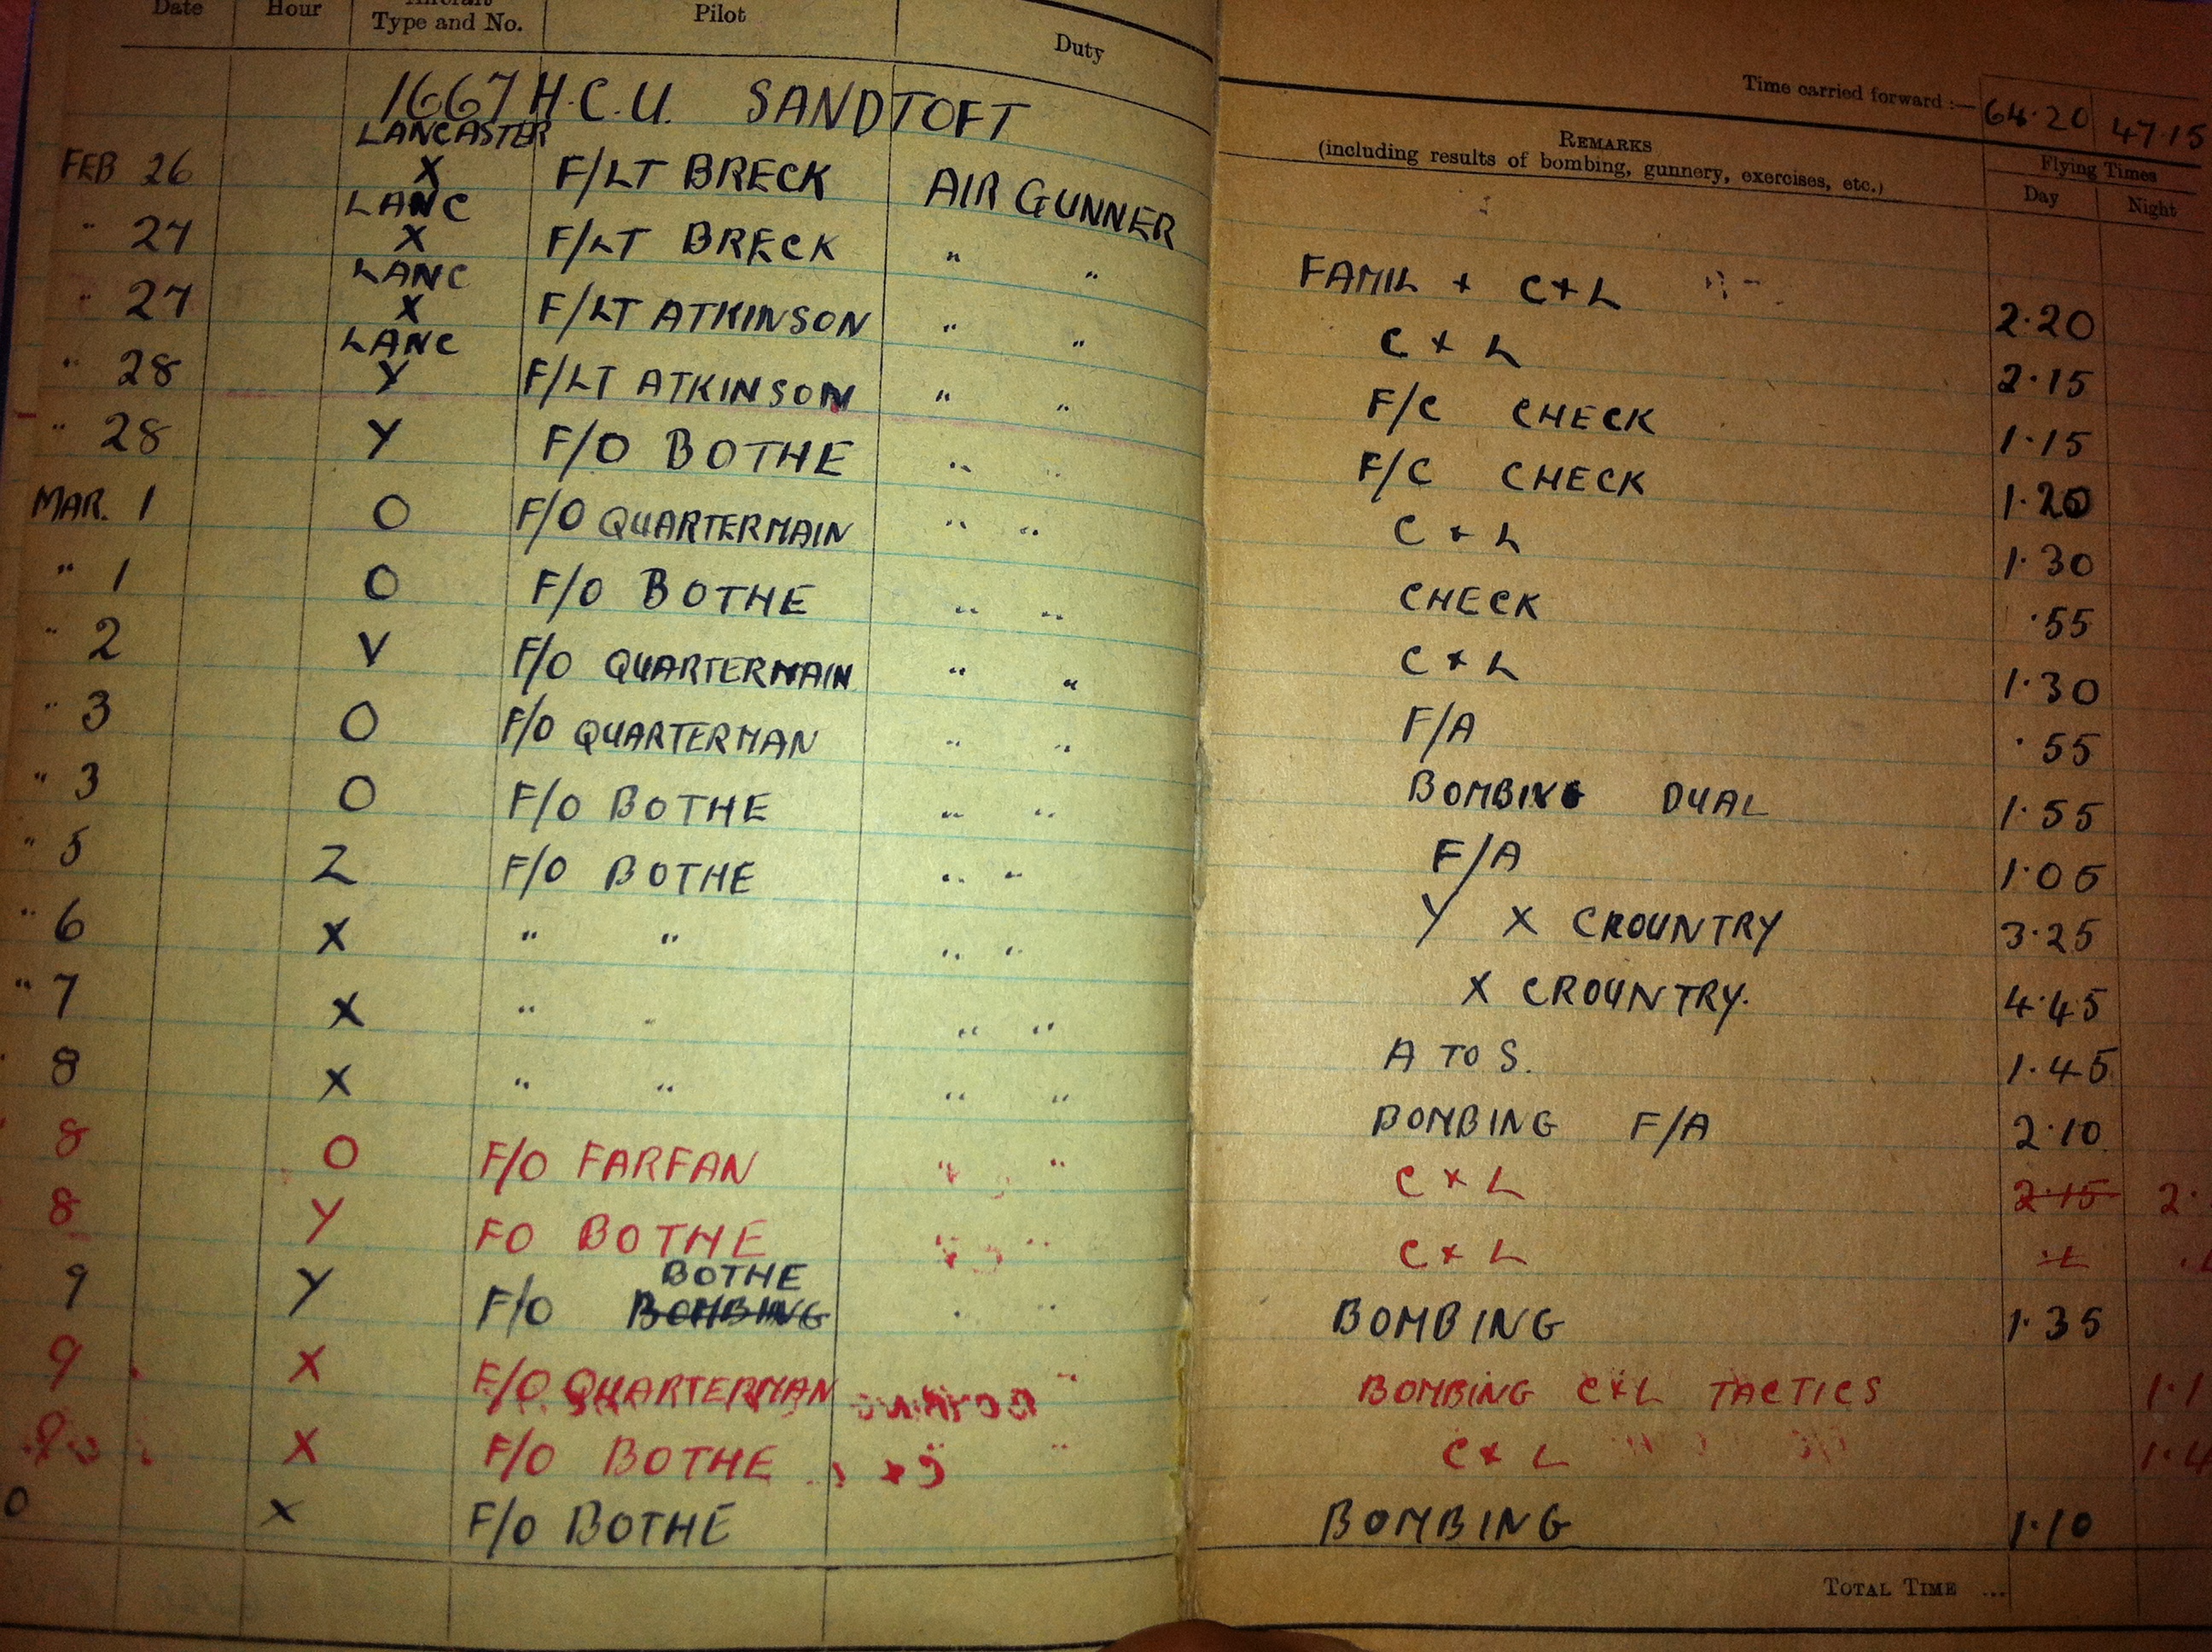 Date Hour Aircraft Type and No. Pilot Duty
1667 H.C.U. SANDTOFT
LANCASTER
FEB 26 X F/LT BRECK AIR GUNNER
LANC
" 27 X F/LT BRECK " "
LANC
" 27 X F/LT ATKINSON " "
LANC
" 28 Y F/LT ATKINSON " "
" 28 Y F/O BOTHE " "
MAR. 1 O F/O QUARTERMAIN " "
" 1 O F/O BOTHE " "
" 2 V F/O QUARTERMAIN " "
" 3 O F/O QUARTERMAN " "
" 3 O F/O BOTHE " "
" 5 Z F/O BOTHE " "
" 6 X " " " "
" 7 X " " " "
8 X " " " "
8 O F/O FARFAN " "
8 Y FO BOTHE " "
BOTHE
9 Y F/O BOMBING " "
9 X F/O QUARTERMAN "
X F/O BOTHE "
0 X F/O BOTHE
Time carried forward :— 64.20 47.15
REMARKS
(including results of bombing, gunnery, exercises, etc.)
Flying Times
Day Night
FAMIL + C+L 2.20
C + L 2.15
F/C CHECK 1.15
F/C CHECK 1.20
C + L 1.30
CHECK .55
C + L 1.30
F/A .55
BOMBING DUAL 1.55
F/A 1.05
Y X CROUNTRY 3.25
X CROUNTRY. 4.45
A TO S. 1.45
BOMBING F/A 2.10
C + L 2.15 2.
C + L
BOMBING 1.35
BOMBING C+L TACTICS 1.1
C + L 1.4
BOMBING 1.10
TOTAL TIME ...